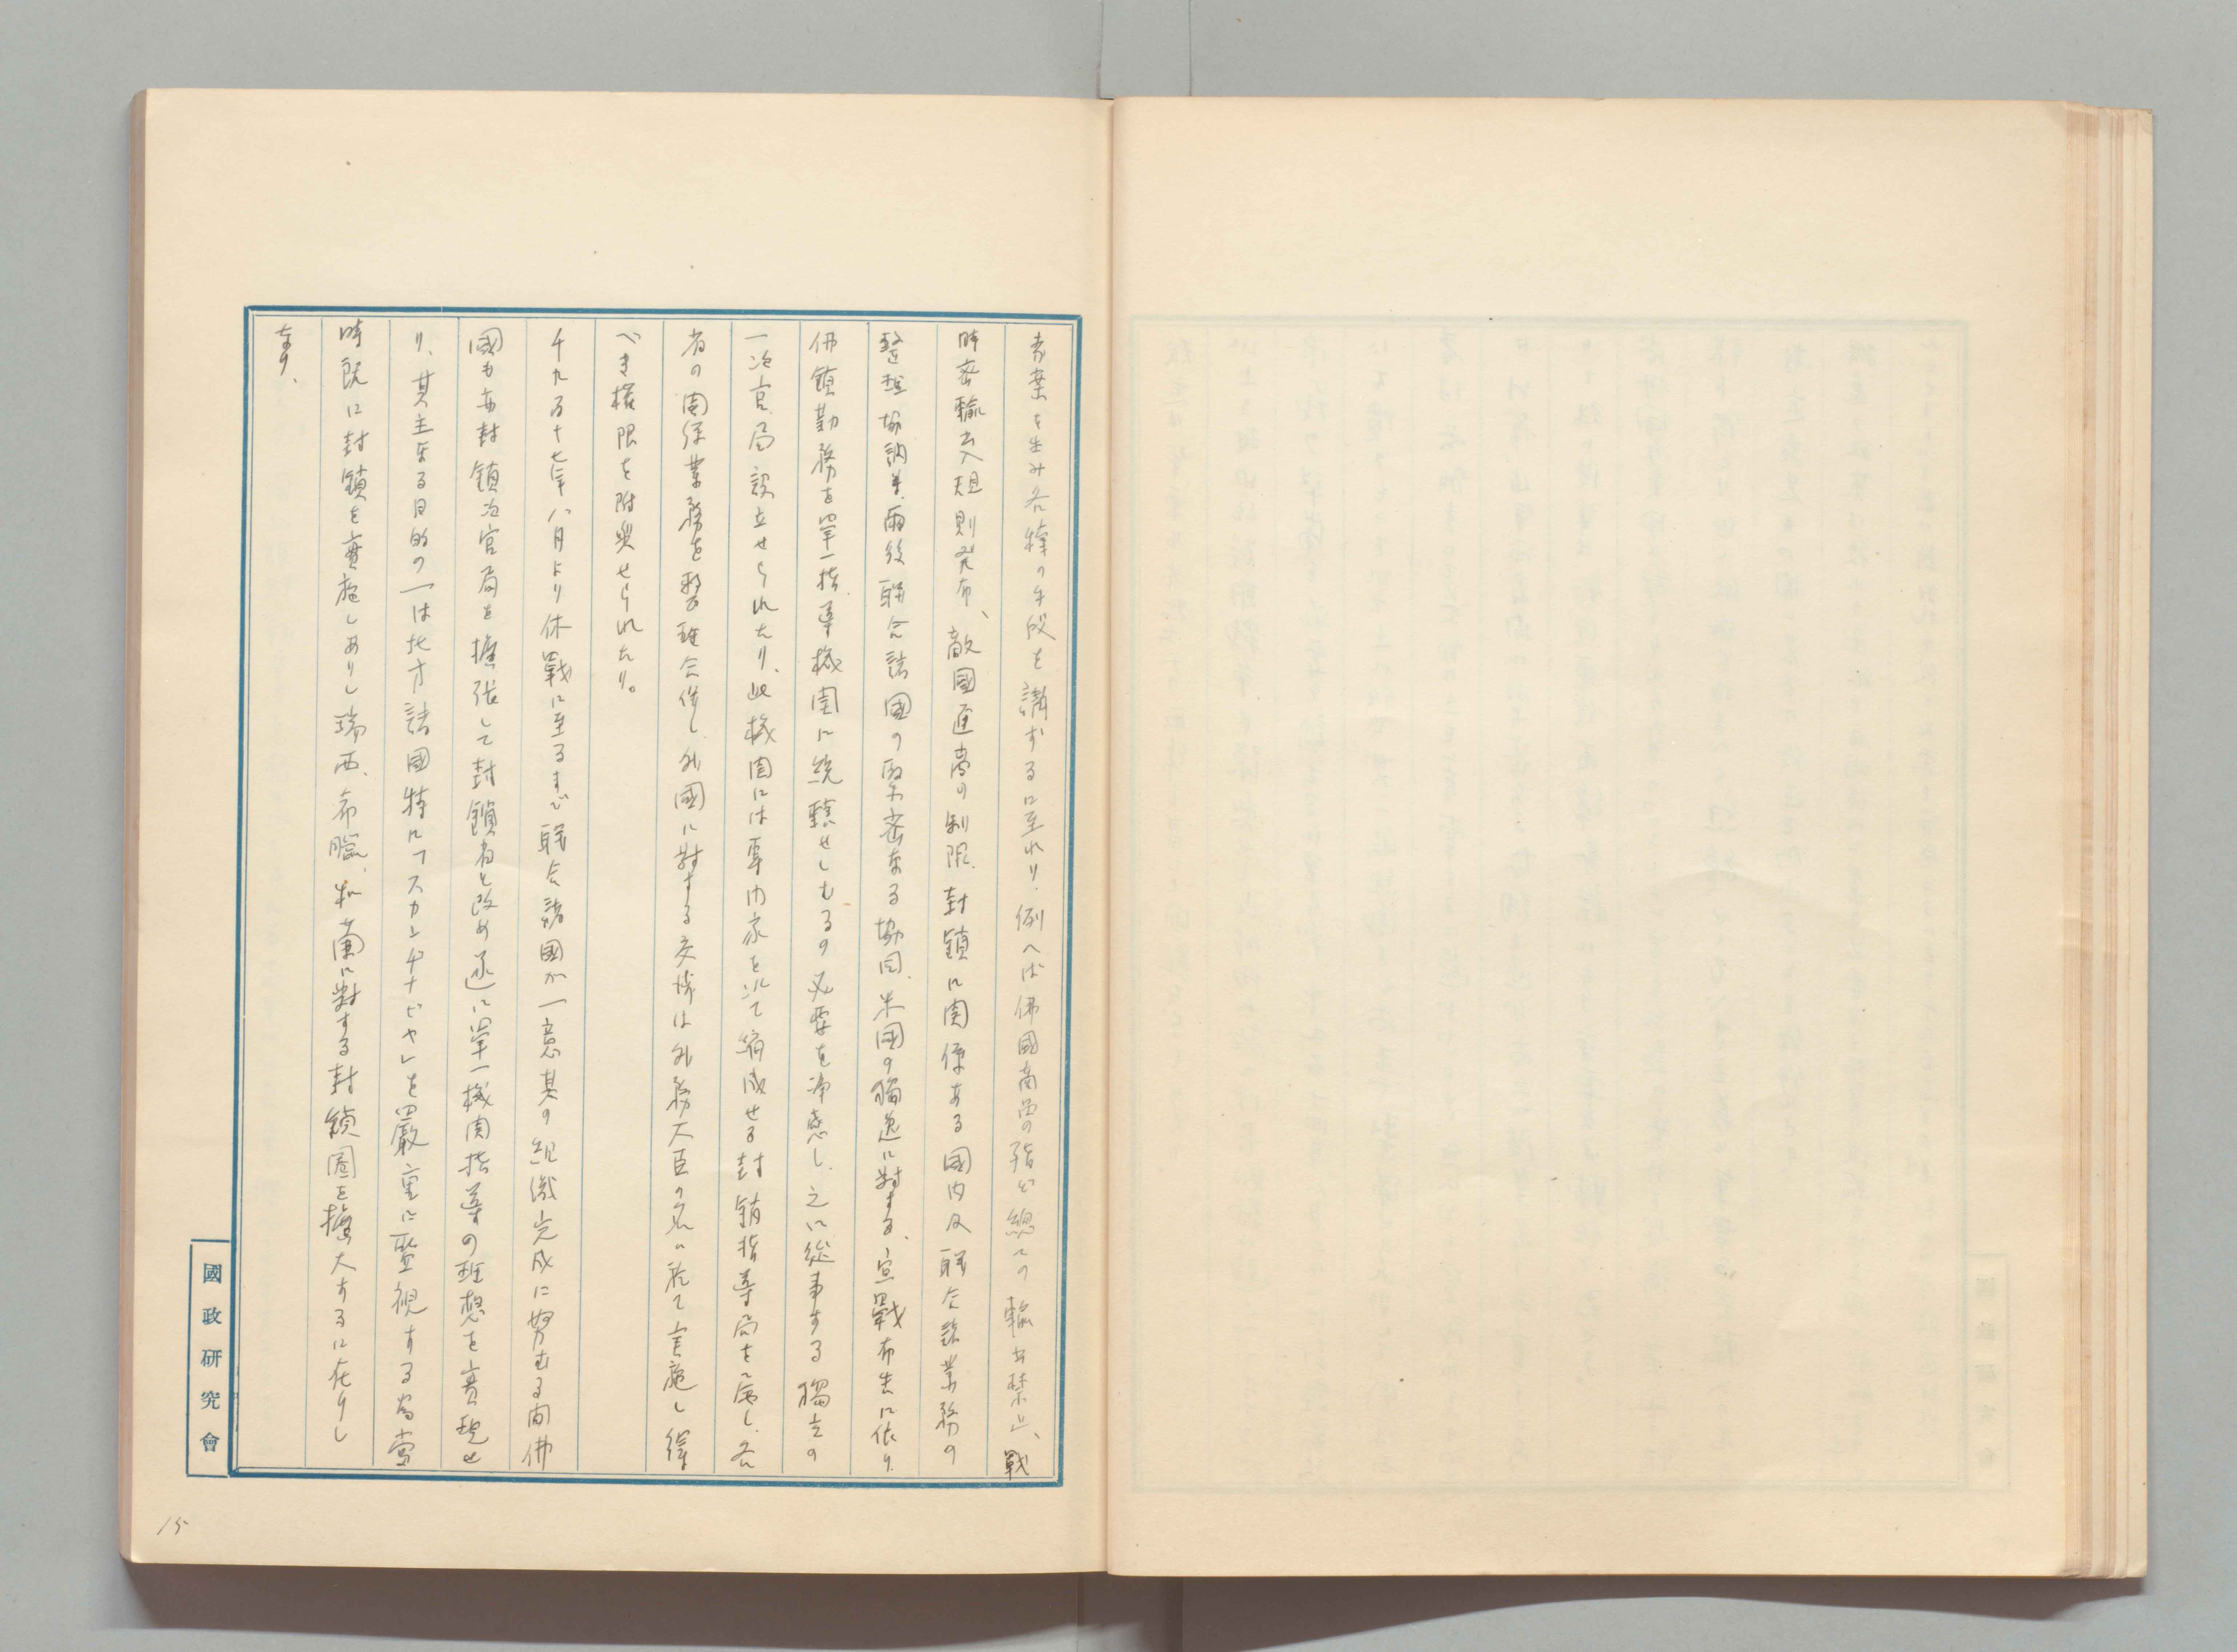 考案を生み各種の手段を講ずるに至れり。例へば佛國商品の殆ど總ての輸出禁止、戰
時密輸出入規則発布、敵國通商の制限、封鎖に関係ある國内及聯合諸業務の
整理協調等。爾後聯合諸國の緊密なる協同、米國の獨逸に對する、宣戰布告に依り
佛鎖勤務を單一指導機関に統轄せしむるの必要を痛感し、之に從事する獨立の
一次官局設立せられたり、此機関には專門家を以て編成せる封鎖指導局を属し、各
省の関係業務を整理合併し外國に對する交渉は外務大臣の名に於て実施し得
べき權限を附與せられたり。
千九百十七年八月より休戰に至るまで聯合諸國が一意其の組織完成に努むる間佛
國も亦封鎖次官局を擴張して封鎖省と改め遂に單一機関指導の理想を實現せ
り、其主なる目的の一は北方諸國特に「スカンヂナビヤ」を嚴重に監視する為當
時既に封鎖を實施しありし瑞西、希臘、和蘭に對する封鎖圏を擴大するに在りし
なり、
國政研究會
15